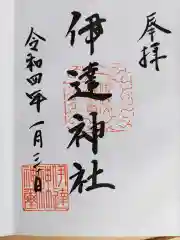 奉拝
伊達神社
令和四年一月三日